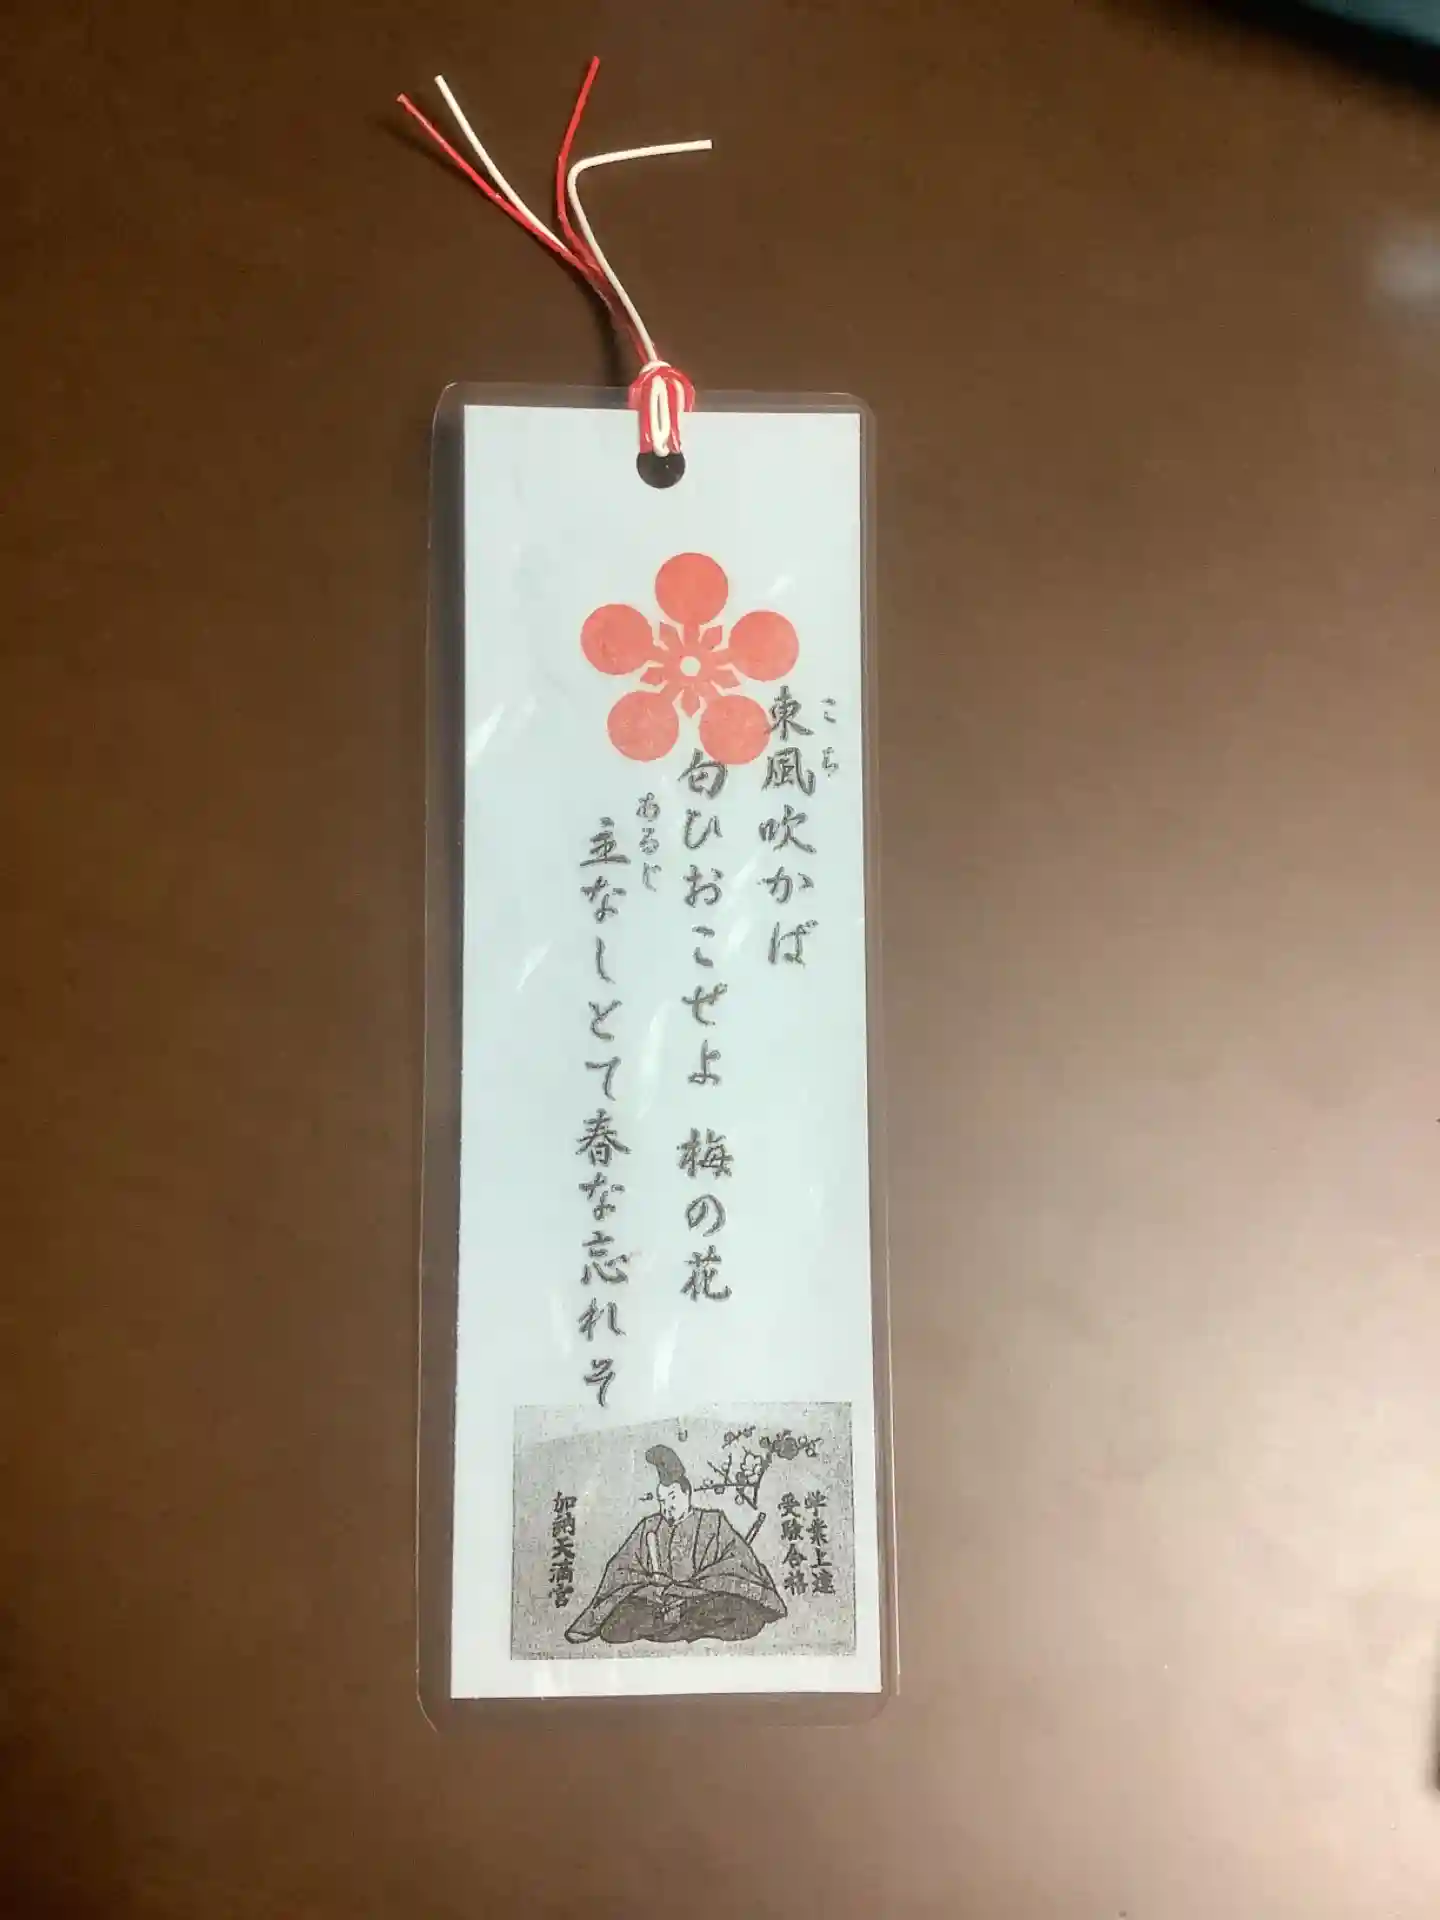 こち
東風吹かば
匂ひおこせよ 梅の花
あるじ
主なしとて春な忘れそ
学業上達
受験合格
加納天満宮